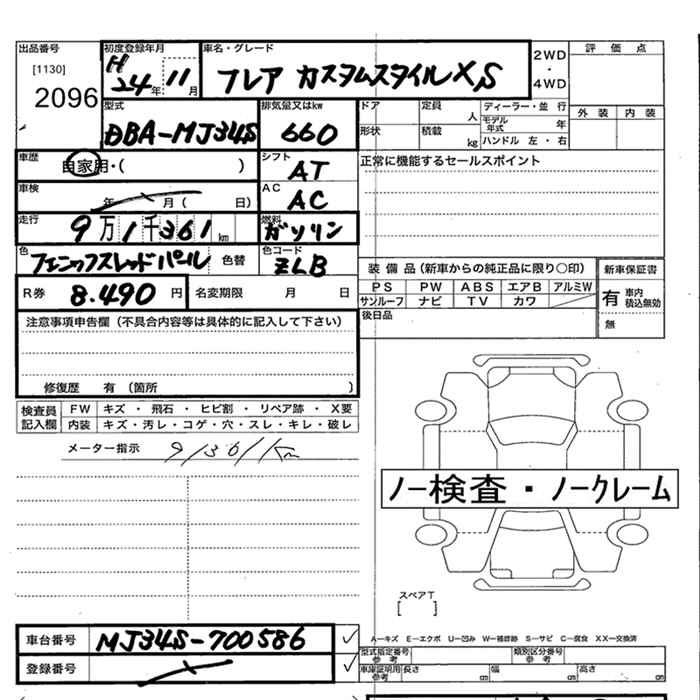 出品番号 初度登録年月 車名・グレード 2WD・4WD 評価点
[1130] H 24年 11月 フレア カスタムスタイル XS
2096
外装 内装
型式 排気量又はkw ドア 定員 人 ディーラー・並行
DBA-MJ34S 660 形状 積載 kg モデル年式 年
ハンドル 左・右
車歴 自家用・( ) シフト AT 正常に機能するセールスポイント
車検 年 月( 日) AC AC
走行 9万1千361km 燃料 ガソリン
色 フェニックスレッドパール 色替 色コード ZLB
装備品(新車からの純正品に限り○印) 新車保証書
R券 8.490円 名変期限 月 日
PS PW ABS エアB アルミW 有 車内積込無効
サンルーフ ナビ TV カワ
後日品 無
注意事項申告欄(不具合内容等は具体的に記入して下さい)
修復歴 有 (箇所 )
検査員記入欄 FW キズ・飛石・ヒビ割・リペア跡・X要
内装 キズ・汚レ・コゲ・穴・スレ・キレ・破レ
メーター指示 91361Km
ノー検査・ノークレーム
スペアT
[ ]
車台番号 MJ34S-700586 ✓
登録番号 ✓
A―キズ E―エクボ U―凹み W―補修跡 S―サビ C―腐食 XX―交換済
型式指定番号 参考 類別区分番号 参考
車庫証明用 参考 長さ cm 幅 cm 高さ cm